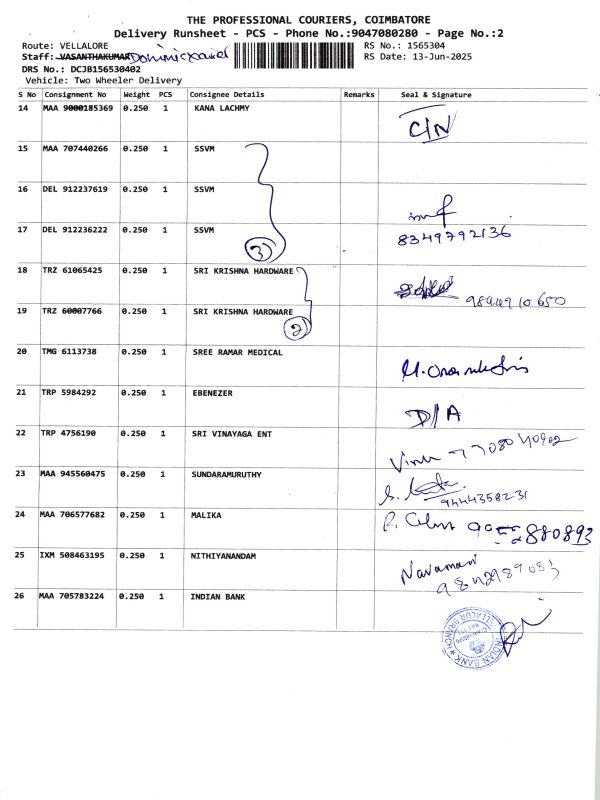 THE PROFESSIONAL COURIERS, COIMBATORE
Delivery Runsheet - PCS - Phone No.:9047080280 - Page No.:2
Route: VELLALORE RS No.: 1565304
Staff: VASANTHAKUMAR RS Date: 13-Jun-2025
DRS No.: DCJB156530402
Vehicle: Two Wheeler Delivery
S No Consignment No Weight PCS Consignee Details Remarks Seal & Signature
14 MAA 9000185369 0.250 1 KANA LACHMY
C/N
15 MAA 707440266 0.250 1 SSVM
16 DEL 912237619 0.250 1 SSVM
17 DEL 912236222 0.250 1 SSVM
8349792136
3
18 TRZ 61065425 0.250 1 SRI KRISHNA HARDWARE
19 TRZ 60007766 0.250 1 SRI KRISHNA HARDWARE
2
20 TMG 6113738 0.250 1 SREE RAMAR MEDICAL
21 TRP 5984292 0.250 1 EBENEZER
D/A
22 TRP 4756190 0.250 1 SRI VINAYAGA ENT
23 MAA 945560475 0.250 1 SUNDARAMURUTHY
9444358231
24 MAA 706577682 0.250 1 MALIKA
25 IXM 508463195 0.250 1 NITHIYANANDAM
Navamani
26 MAA 705783224 0.250 1 INDIAN BANK
INDIAN BANK